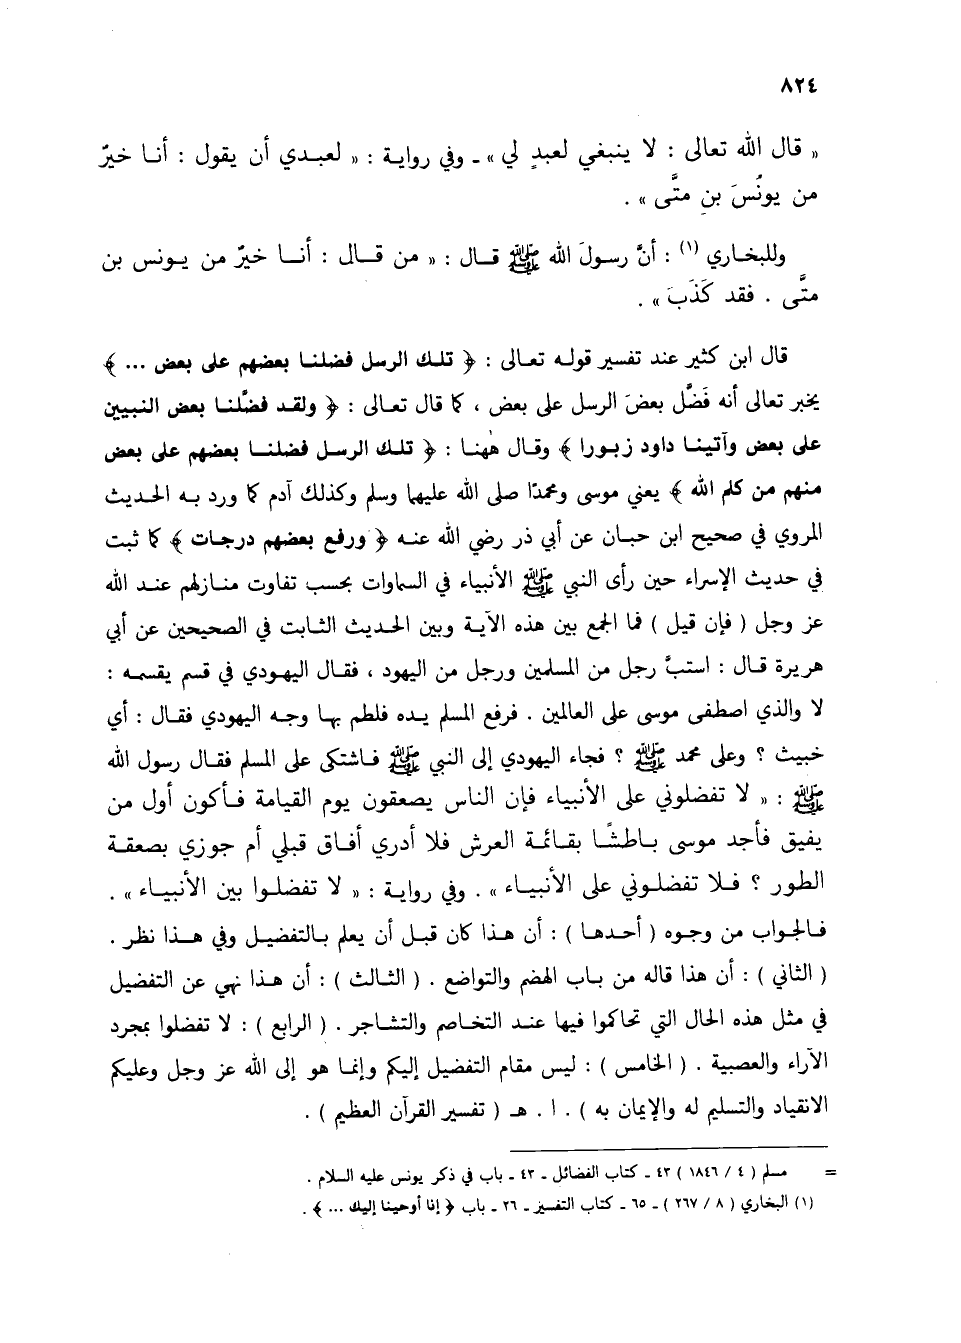 ٨٢٤
« قال الله تعالى : لا ينبغي لعبدٍ لي » ـ وفي رواية : « لعبدي أن يقول : أنا خيرٌ
من يونُسَ بنِ متَّى » .
وللبخاري (١) : أنَّ رسولَ الله ﷺ قال : « من قال : أنا خيرٌ من يونس بن
متَّى . فقد كَذَبَ » .
قال ابن كثير عند تفسير قوله تعالى : ﴿ تلك الرسل فضلنا بعضهم على بعض ... ﴾
يخبر تعالى أنه فَضَّل بعضَ الرسل على بعض ، كما قال تعالى : ﴿ ولقد فضَّلنا بعض النبيين
على بعض وآتينا داود زبورا ﴾ وقال هٰهنا : ﴿ تلك الرسل فضلنا بعضهم على بعض
منهم من كلم الله ﴾ يعني موسى ومحمدًا صلى الله عليهما وسلم وكذلك آدم كما ورد به الحديث
المروي في صحيح ابن حبان عن أبي ذر رضي الله عنه ﴿ ورفع بعضهم درجات ﴾ كما ثبت
في حديث الإسراء حين رأى النبي ﷺ الأنبياء في السماوات بحسب تفاوت منازلهم عند الله
عز وجل ( فإن قيل ) فما الجمع بين هذه الآية وبين الحديث الثابت في الصحيحين عن أبي
هريرة قال : استبَّ رجل من المسلمين ورجل من اليهود ، فقال اليهودي في قسم يقسمه :
لا والذي اصطفى موسى على العالمين . فرفع المسلم يده فلطم بها وجه اليهودي فقال : أي
خبيث ؟ وعلى محمد ﷺ ؟ فجاء اليهودي إلى النبي ﷺ فاشتكى على المسلم فقال رسول الله
ﷺ : « لا تفضلوني على الأنبياء فإن الناس يصعقون يوم القيامة فأكون أول من
يفيق فأجد موسى باطشًا بقائمة العرش فلا أدري أفاق قبلي أم جوزي بصعقة
الطور ؟ فلا تفضلوني على الأنبياء » . وفي رواية : « لا تفضلوا بين الأنبياء » .
فالجواب من وجوه ( أحدها ) : أن هذا كان قبل أن يعلم بالتفضيل وفي هذا نظر .
( الثاني ) : أن هذا قاله من باب الهضم والتواضع . ( الثالث ) : أن هذا نهي عن التفضيل
في مثل هذه الحال التي تحاكموا فيها عند التخاصم والتشاجر . ( الرابع ) : لا تفضلوا بمجرد
الآراء والعصبية . ( الخامس ) : ليس مقام التفضيل إليكم وإنما هو إلى الله عز وجل وعليكم
الانقياد والتسليم له والإيمان به ) . ا . هـ ( تفسير القرآن العظيم ) .
= مسلم ( ٤ / ١٨٤٦ ) ٤٣ ـ كتاب الفضائل ـ ٤٣ ـ باب في ذكر يونس عليه السلام .
(١) البخاري ( ٨ / ٢٦٧ ) ـ ٦٥ ـ كتاب التفسير ـ ٢٦ ـ باب ﴿ إنا أوحينا إليك ... ﴾ .